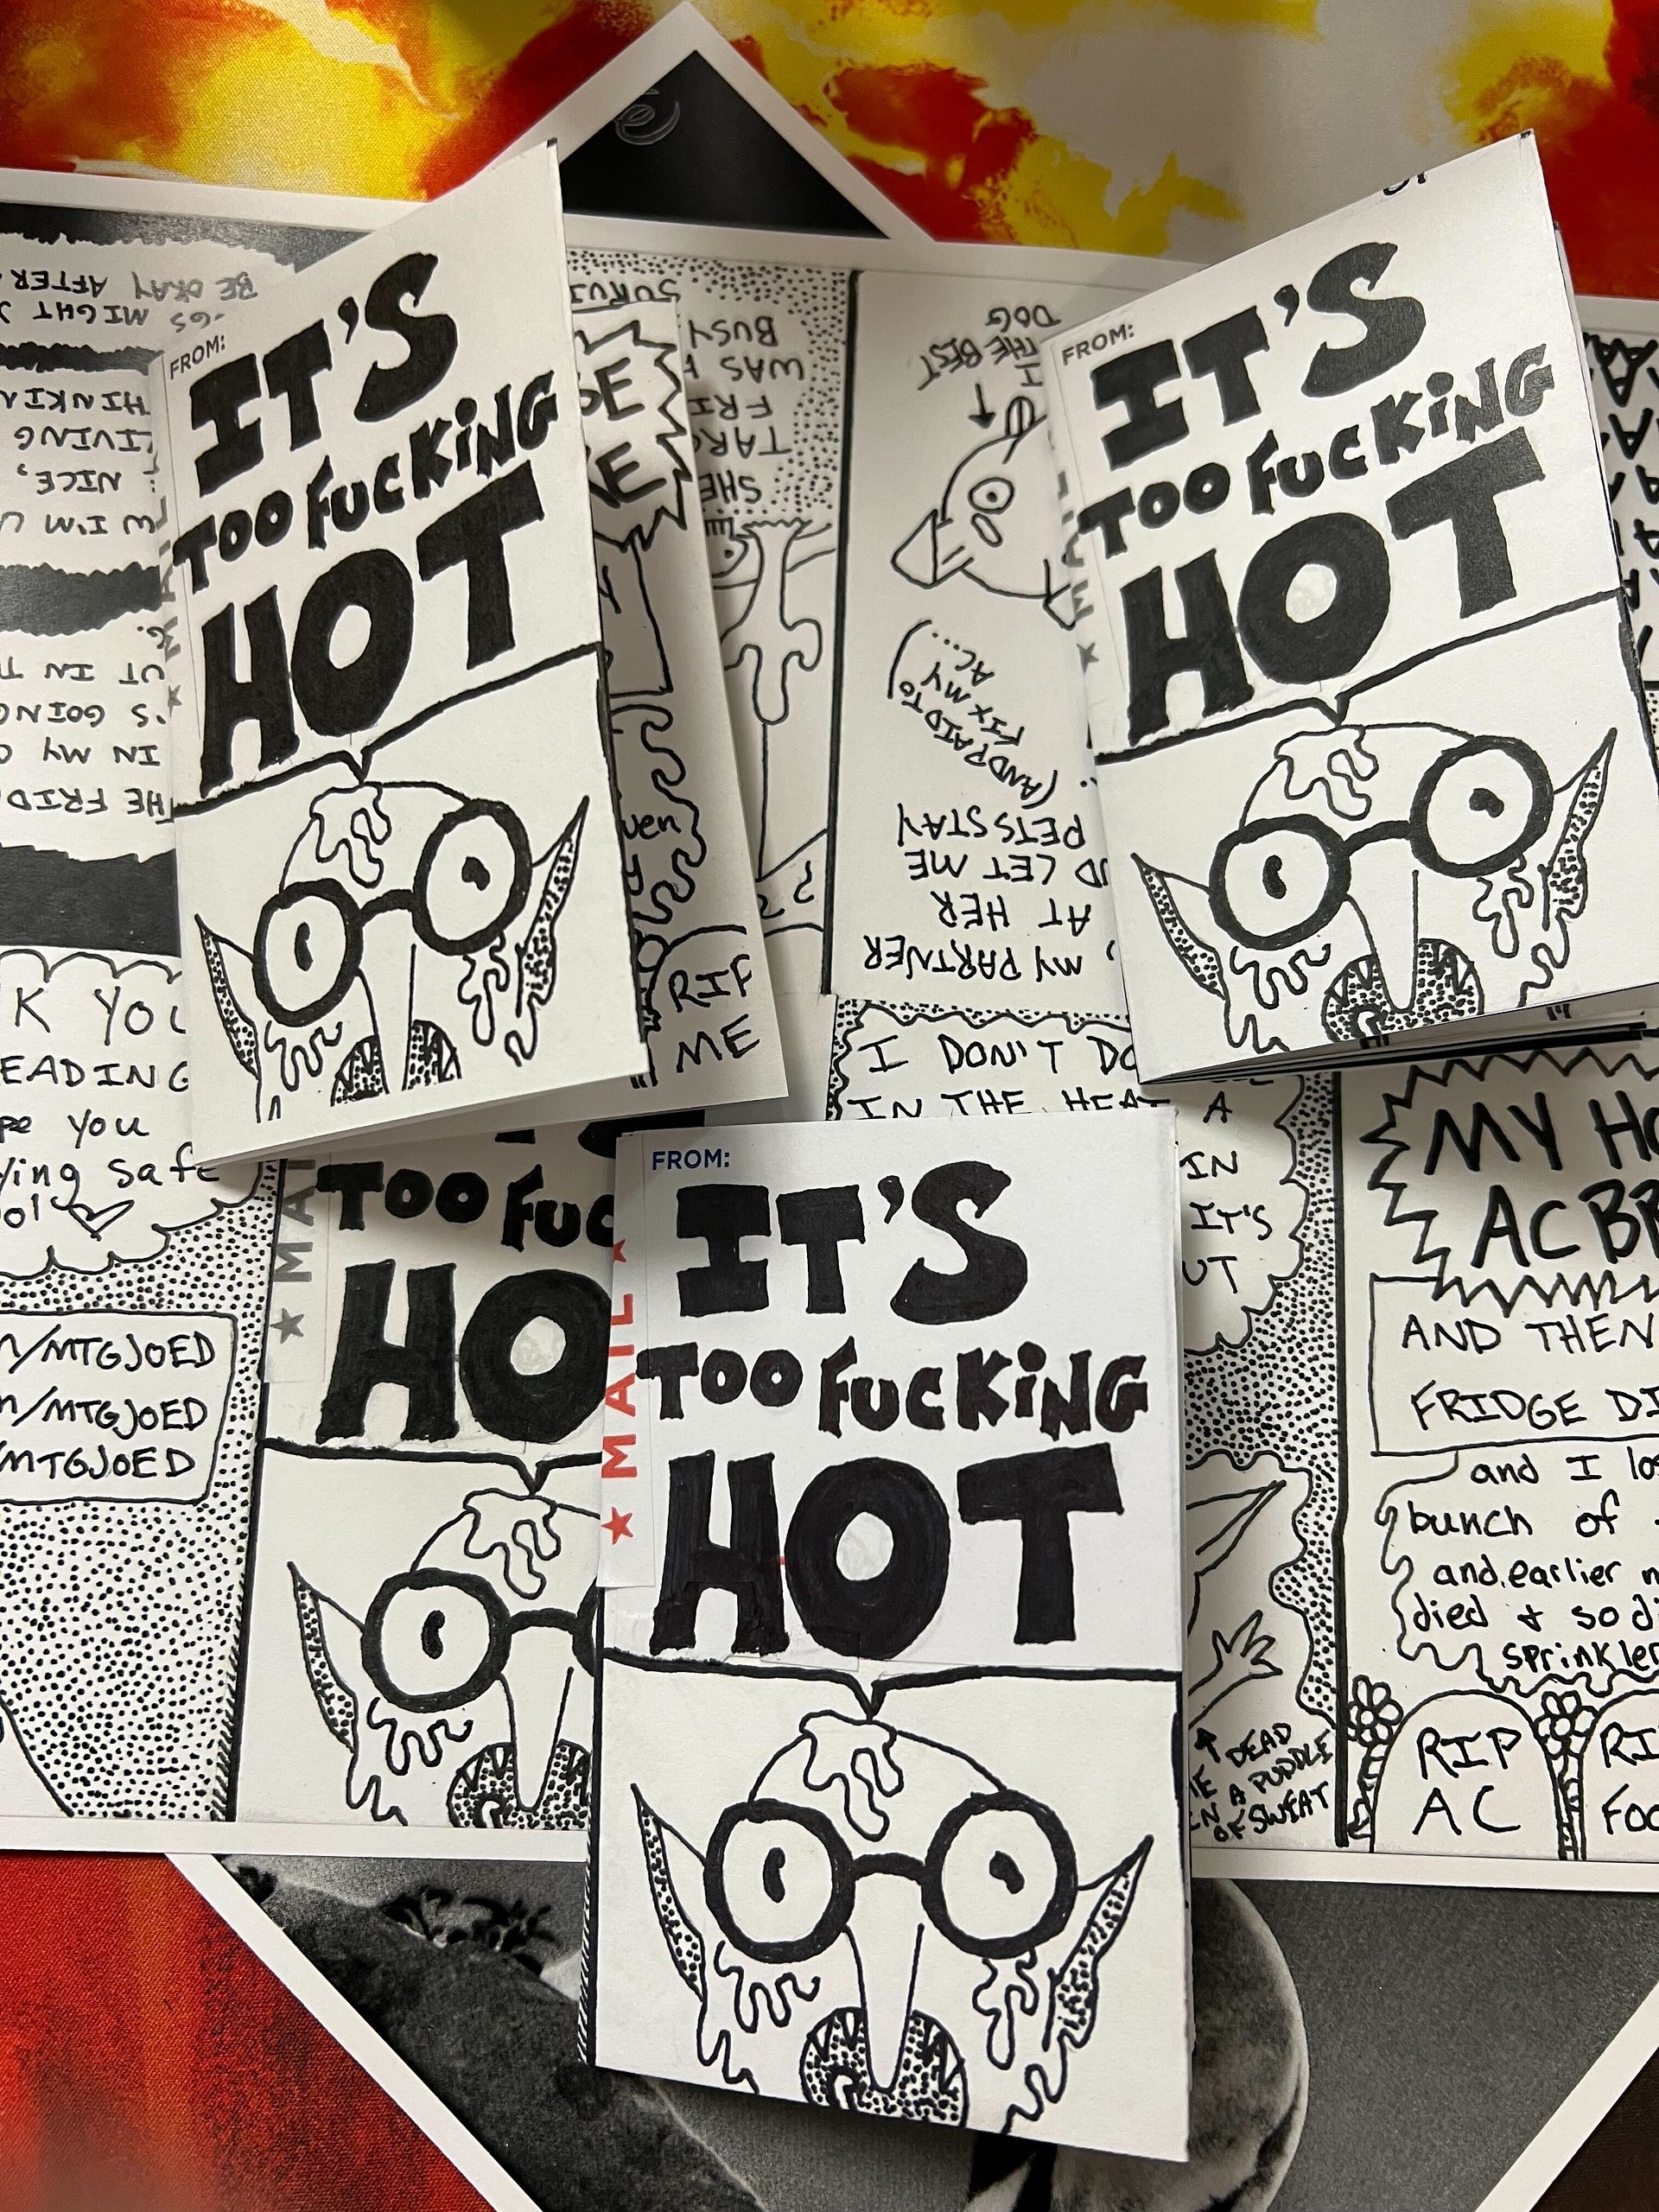 BE OKAY AFTER
GS MIGHT
HINKIN
LIVING
NICE,
W I'M
UT IN T
'S GOING
IN MY
HE FRID
FROM:
IT'S
TOO FUCKING
HOT
SURVI
BUSY
WAS
FRI
TARG
SHE
RE
uen
RIP
ME
THE BEST
DOG
(AND PAID TO
FIX MY
AC...)
, MY PARTNER
AT HER
D LET ME
PETS STAY
FROM:
IT'S
TOO FUCKING
HOT
K YOU
EADING
pe you
ying safe
ol
M/MTGJOED
M/MTGJOED
/MTGJOED
MAI
TOO FUC
HO
I DON'T DO
IN THE HEAT
A
IN
IT'S
UT
FROM:
★ MAIL ★
IT'S
TOO FUCKING
HOT
DEAD
ME
IN A PUDDLE
OF SWEAT
MY HO
AC BR
AND THEN
FRIDGE DI
and I los
bunch of
and earlier m
died & so di
sprinkler
RIP
AC
RI
FOO